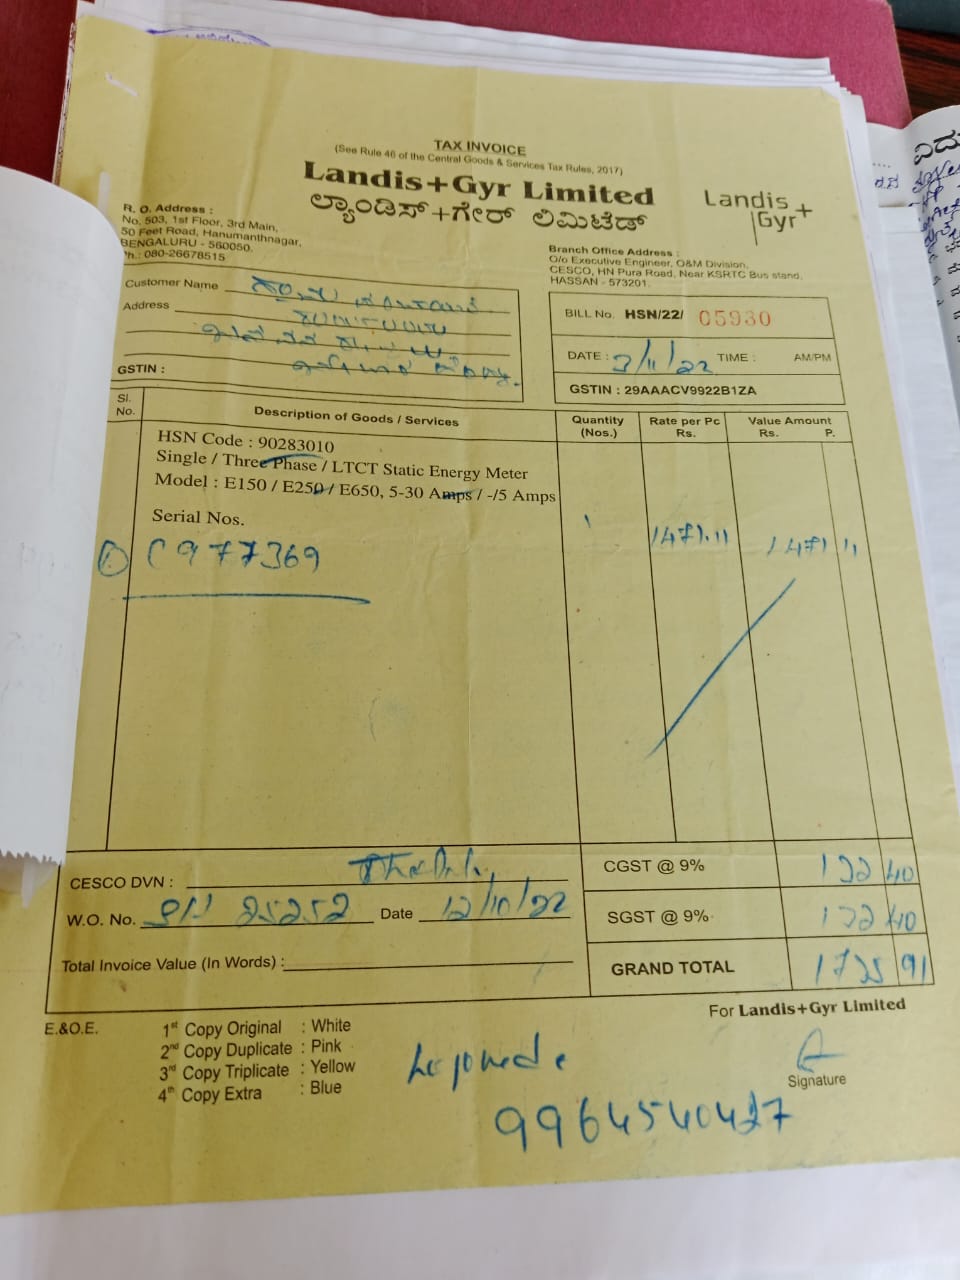 TAX INVOICE
(See Rule 46 of the Central Goods & Services Tax Rules, 2017)
Landis+Gyr Limited
ಲ್ಯಾಂಡಿಸ್+ಗೇರ್ ಲಿಮಿಟೆಡ್
Landis+
Gyr
R. O. Address :
No. 503, 1st Floor, 3rd Main,
50 Feet Road, Hanumanthnagar,
BENGALURU - 560050.
Ph.: 080-26678515
Branch Office Address :
O/o Executive Engineer, O&M Division,
CESCO, HN Pura Road, Near KSRTC Bus stand,
HASSAN - 573201.
Customer Name
Address
GSTIN :
BILL No. HSN/22/ 05930
DATE : 3/11/22 TIME : AM/PM
GSTIN : 29AAACV9922B1ZA
Sl. No. Description of Goods / Services Quantity (Nos.) Rate per Pc Rs. Value Amount Rs. P.
HSN Code : 90283010
Single / Three Phase / LTCT Static Energy Meter
Model : E150 / E250 / E650, 5-30 Amps / -/5 Amps
Serial Nos.
1 C977369 1 1471.11 1471 11
CESCO DVN :
CGST @ 9% 132 40
W.O. No. 25252 Date 12/10/22
SGST @ 9% 132 40
Total Invoice Value (In Words) :
GRAND TOTAL 1735 91
E.&O.E.
For Landis+Gyr Limited
1st Copy Original : White
2nd Copy Duplicate : Pink
3rd Copy Triplicate : Yellow
4th Copy Extra : Blue
Signature
9964540427